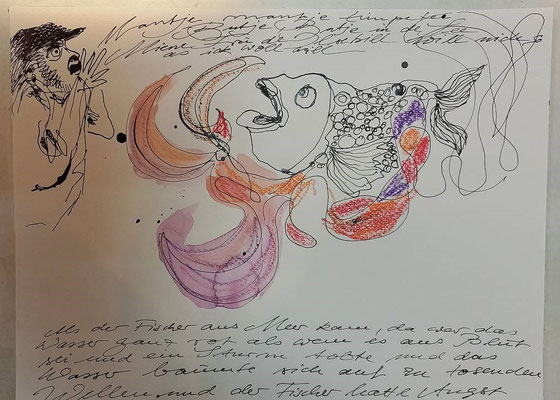 Mantje mantje timpete
Buttje Buttje in de See
Miene Fru de Ilsebill will nich so
as ick woll will
Als der Fischer ans Meer kam, da war das
Wasser ganz rot als wenn es aus Blut
sei und ein Sturm tobte und das
Wasser bäumte sich auf zu tosenden
Wellen und der Fischer hatte Angst